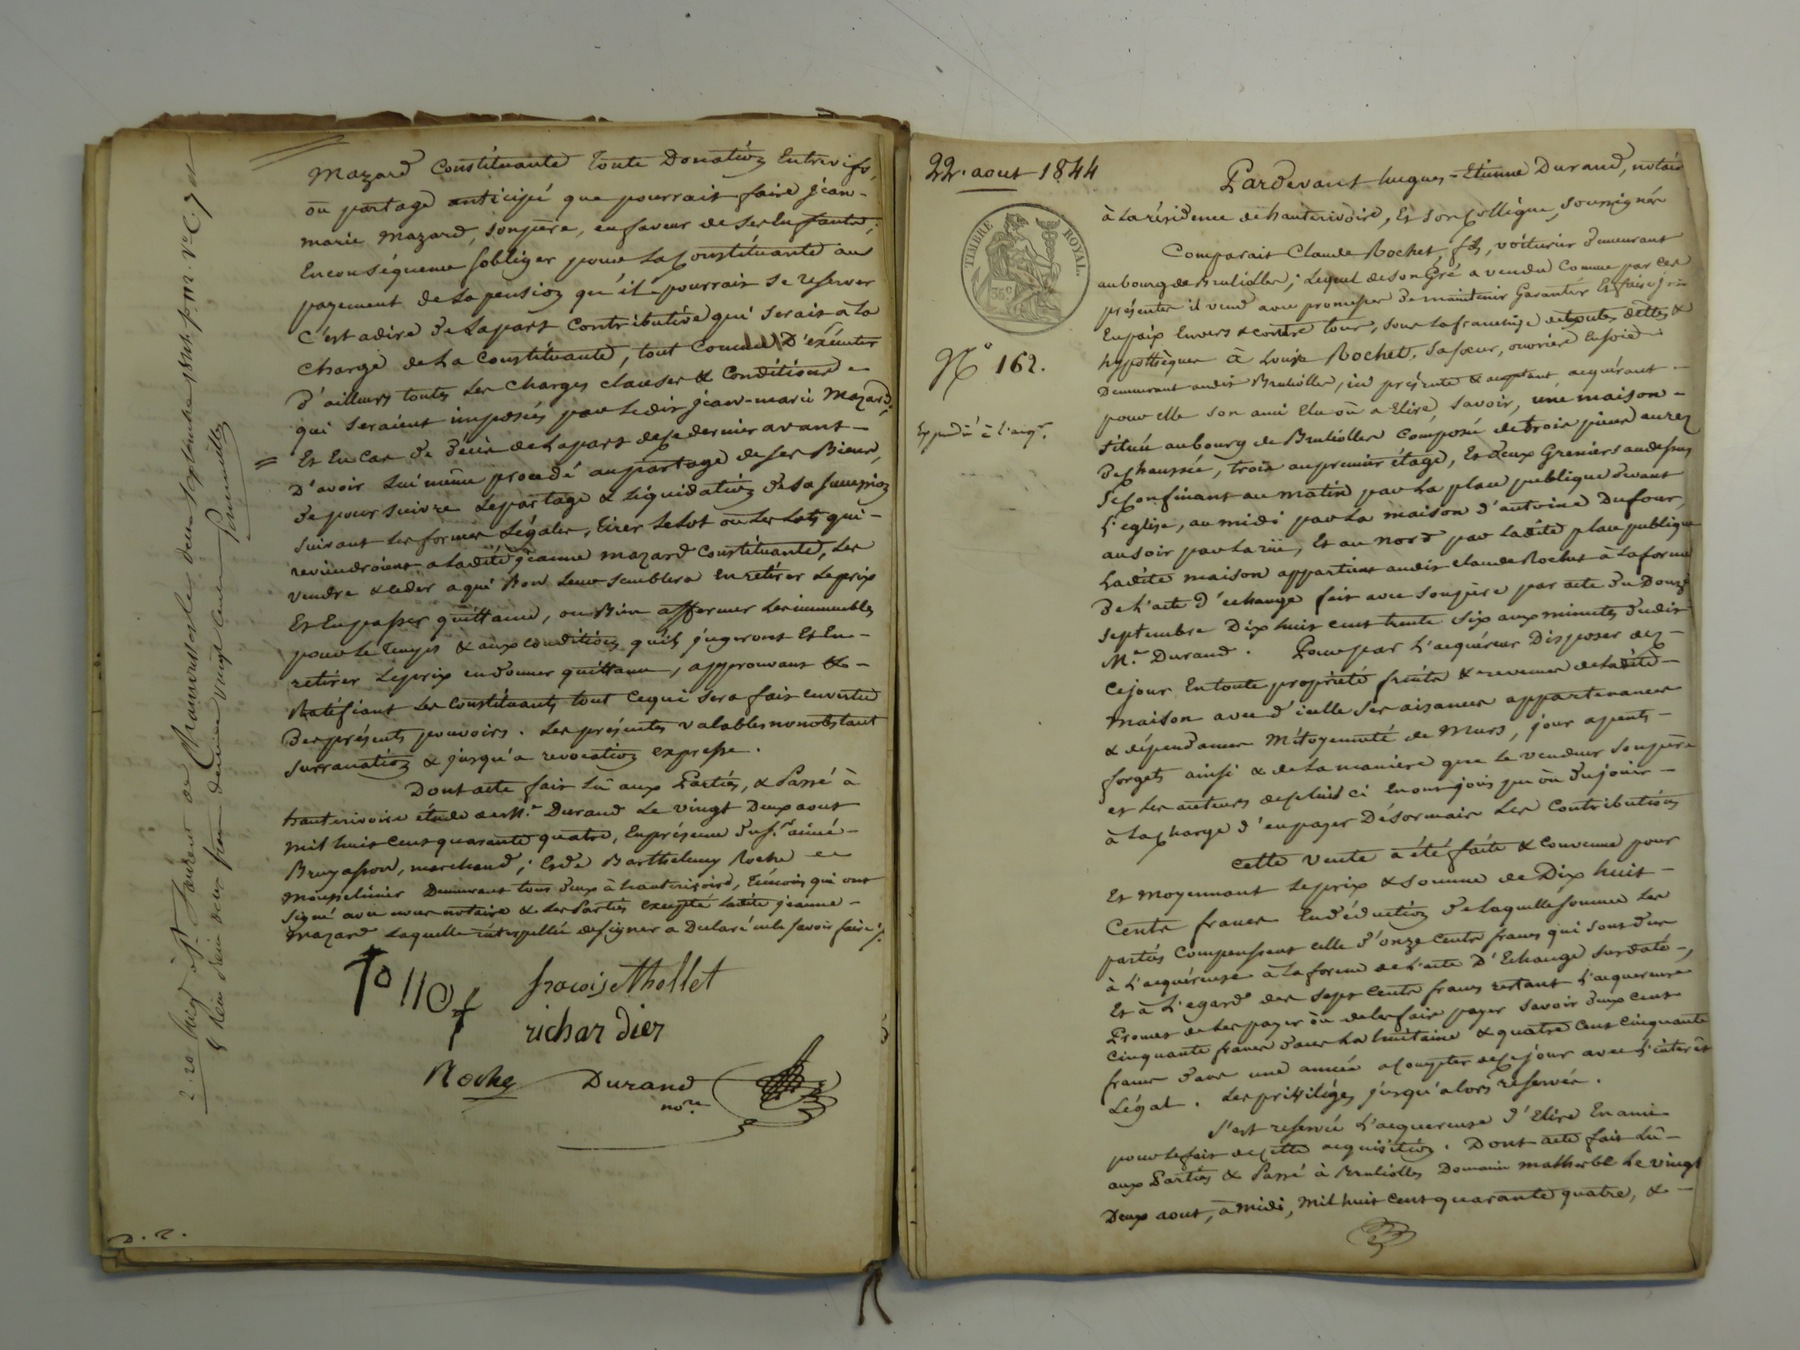 Mazard Constituante toute Donation Entrevifs,
ou partage anticipé que pourrait faire jean-
marie Mazard, sonpère, enfaveur de ses Enfants,
Enconséquence sobliger pour la Constituante au
payement de la pension qu'il pourrait se reserver
C'est adire de la part Contributive qui serait à la
charge de La Constituante, tout Comme D'éxécuter
D'ailleurs toutes les charges clauses & Conditions
qui seraient imposées par Ledit jean-marie Mazard,
Et En Cas de Décès de la part de ce dernier avant-
D'avoir Lui même procédé au partage de ses Biens,
de poursuivre Lepartage & Liquidation de sa succession
suivant les formes Légales, tirer Le Lot ou Les Lots qui-
reviendroient a Ladite jeanne Mazard Constituante, Les
vendre & céder a qui Bon Leur semblera En retirer Leprix
Et En passer quittance, ou Bien affermer Les immeubles
pour le temps & aux conditions quils jugeront Et En-
retirer Leprix en donner quittance, approuvant &-
Ratifiant Les Constituants tout cequi sera fait en vertu
Des présents pouvoirs. Les présentes valables nonobstant
surranation & jusqu'a revocation expresse.
Dont acte fait Lû aux Parties, & Passé à
hauterivoire étude de Me Durand Le vingt Deux aout
Mil huit Cent quarante quatre, En présence du Sr aimé-
Bruyasson, marchand; Et de Barthelemy Roche
Mousselinier Demeurant tous deux à hauterivoire, témoins qui ont
signé avec nous notaire & Les Parties excepté Ladite jeanne-
Mazard Laquelle interpellée de signer a Déclaré ne le savoir faire;
françois Thollet
richar dier
Roche Durand
nore
D. 2.
22. aout 1844
TIMBRE ROYAL.
35c
No 162.
Expédié à l'acqr.
Pardevant hugues-Etienne Durand, notaire
à La résidence de hauterivoire, Et son Collègue, soussignés
Comparait Claude Rochet, fils, voiturier Demeurant
au bourg de Brullioles; Lequel de son Gré a vendu Comme par ces
présentes il vend avec promesse de maintenir Garantir Et faire jouir
En paix Envers & contre tous, sous La franchise de toutes dettes &
hypothèques à Louise Rochet, sa sœur, ouvrière En soie
Demeurant audit Brullioles, ici présente & acceptant acquérant-
pour elle son ami Elu ou a Elire, savoir, une maison-
située au bourg de Brullioles Composée de trois pièces au rez
De chaussée, trois au premier étage, Et Deux Greniers au dessus
se Confinant au matin par La place publique Devant
L'église, au midi par La maison d'antoine Dufour,
au soir par La rue, Et au nord par Ladite place publique
Ladite maison appartient audit Claude Rochet à La forme
De L'acte d'echange fait avec son père par acte du Douze
septembre Dix huit cent trente six aux minutes dudit
Me Durand. Pour par L'acquéreur Disposer dez-
Cejour En toute propriété fruits & revenus de Ladite-
maison avec d'icelle ses aisances appartenances
& dépendances Mitoyenneté de Murs, jour apents-
forgets ainsi & de La maniére que Le vendeur son père
et Les auteurs de celui ci En ont joui pu ou du jouir-
à La Charge d'en payer Désormais Les Contributions
Cette vente a été faite & convenue pour
Et Moyennant Le prix & somme de Dix huit-
Cents francs En déduction de Laquelle somme Les
parties Compensent celle d'onze Cents francs qui sont dus
à L'acquéreuse à La forme de L'acte D'Echange susdaté-,
Et à L'egard des sept Cents francs restant L'acquereuse
Promet de Les payer ou de Les faire payer savoir Deux cent
Cinquante francs dans La huitaine & quatre Cent Cinquante
francs dans une année a Compter de ce jour avec L'intérêt
Légal. Les priviléges jusqu'alors réservés.
S'est reservée L'acquereuse d'Elire En ami
pour Le fait de Cette acquisition. Dont acte fait Lû-
aux Parties & Passé à Brullioles Domaine malherbe Le vingt
Deux aout, à midi, Mil huit cent quarante quatre, &-